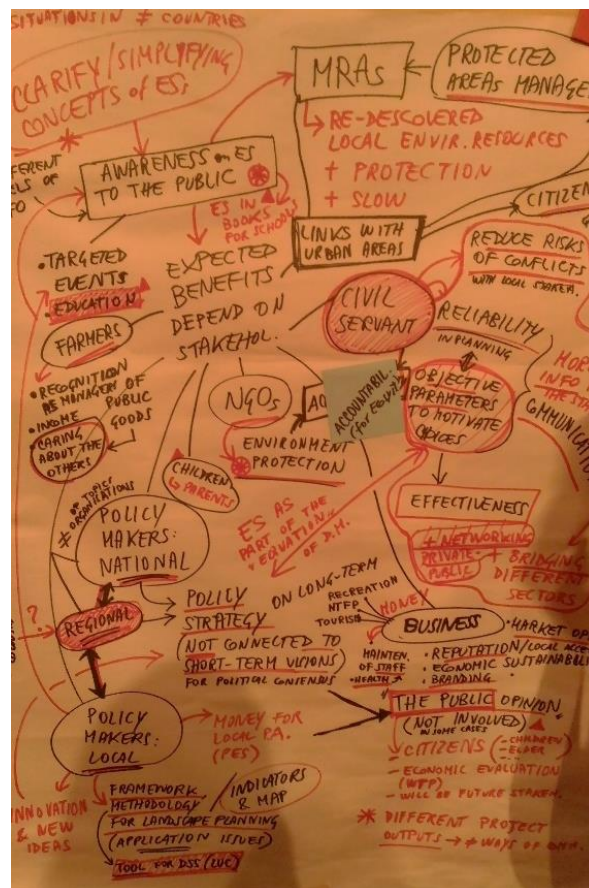 SITUATIONS IN ≠ COUNTRIES
CLARIFY/SIMPLIFYING
CONCEPTS of ESs
MRAs
PROTECTED
AREAS MANAGE
RE-DISCOVERED
LOCAL ENVIR. RESOURCES
+ PROTECTION
+ SLOW
AWARENESS on ES
TO THE PUBLIC
ES IN
BOOKS
FOR SCHOOLS
LINKS WITH
URBAN AREAS
CITIZEN
REDUCE RISKS
OF CONFLICTS
WITH LOCAL STAKEH.
• TARGETED
EVENTS
• EDUCATION
FARMERS
EXPECTED
BENEFITS
DEPEND ON
STAKEHOL.
CIVIL
SERVANT
RELIABILITY
IN PLANNING
• RECOGNITION
AS MANAGERS OF
PUBLIC
GOODS
• INCOME
CARING
ABOUT THE
OTHERS
NGOs
ENVIRONMENT
PROTECTION
ACCOUNTABIL.
(for EQUITY)
OBJECTIVE
PARAMETERS
TO MOTIVATE
CHOICES
MORE
INFO
THE STA
COMMUNICATIO
CHILDREN
↳ PARENTS
EFFECTIVENESS
+ NETWORKING
PRIVATE-
PUBLIC
+ BRIDGING
DIFFERENT
SECTORS
≠ OF TOPIC/
ORGANISATIONS
POLICY
MAKERS:
NATIONAL
ES AS
PART OF THE
"EQUATION"
OF D.M.
?
REGIONAL
POLICY
STRATEGY
ON LONG-TERM
(NOT CONNECTED TO
SHORT-TERM VISIONS)
FOR POLITICAL CONSENSUS
RECREATION
NTFP
TOURISM
MONEY
BUSINESS
• MARKET OP
• REPUTATION/LOCAL ACCE
• ECONOMIC SUSTAINABIL
• BRANDING
MAINTEN.
OF STAFF
HEALTH
POLICY
MAKERS:
LOCAL
MONEY FOR
LOCAL P.A.
(PES)
THE PUBLIC OPINION
(NOT INVOLVED)
IN SOME CASES
CITIZENS
- CHILDREN
- ELDER
- ECONOMIC EVALUATION
(WTP)
- WILL OF FUTURE STAKEH.
INNOVATION
& NEW
IDEAS
FRAMEWORK
METHODOLOGY
FOR LANDSCAPE PLANNING
(APPLICATION ISSUES)
TOOL FOR DSS (LUC)
INDICATORS
& MAP
* DIFFERENT PROJECT
OUTPUTS → ≠ WAYS OF